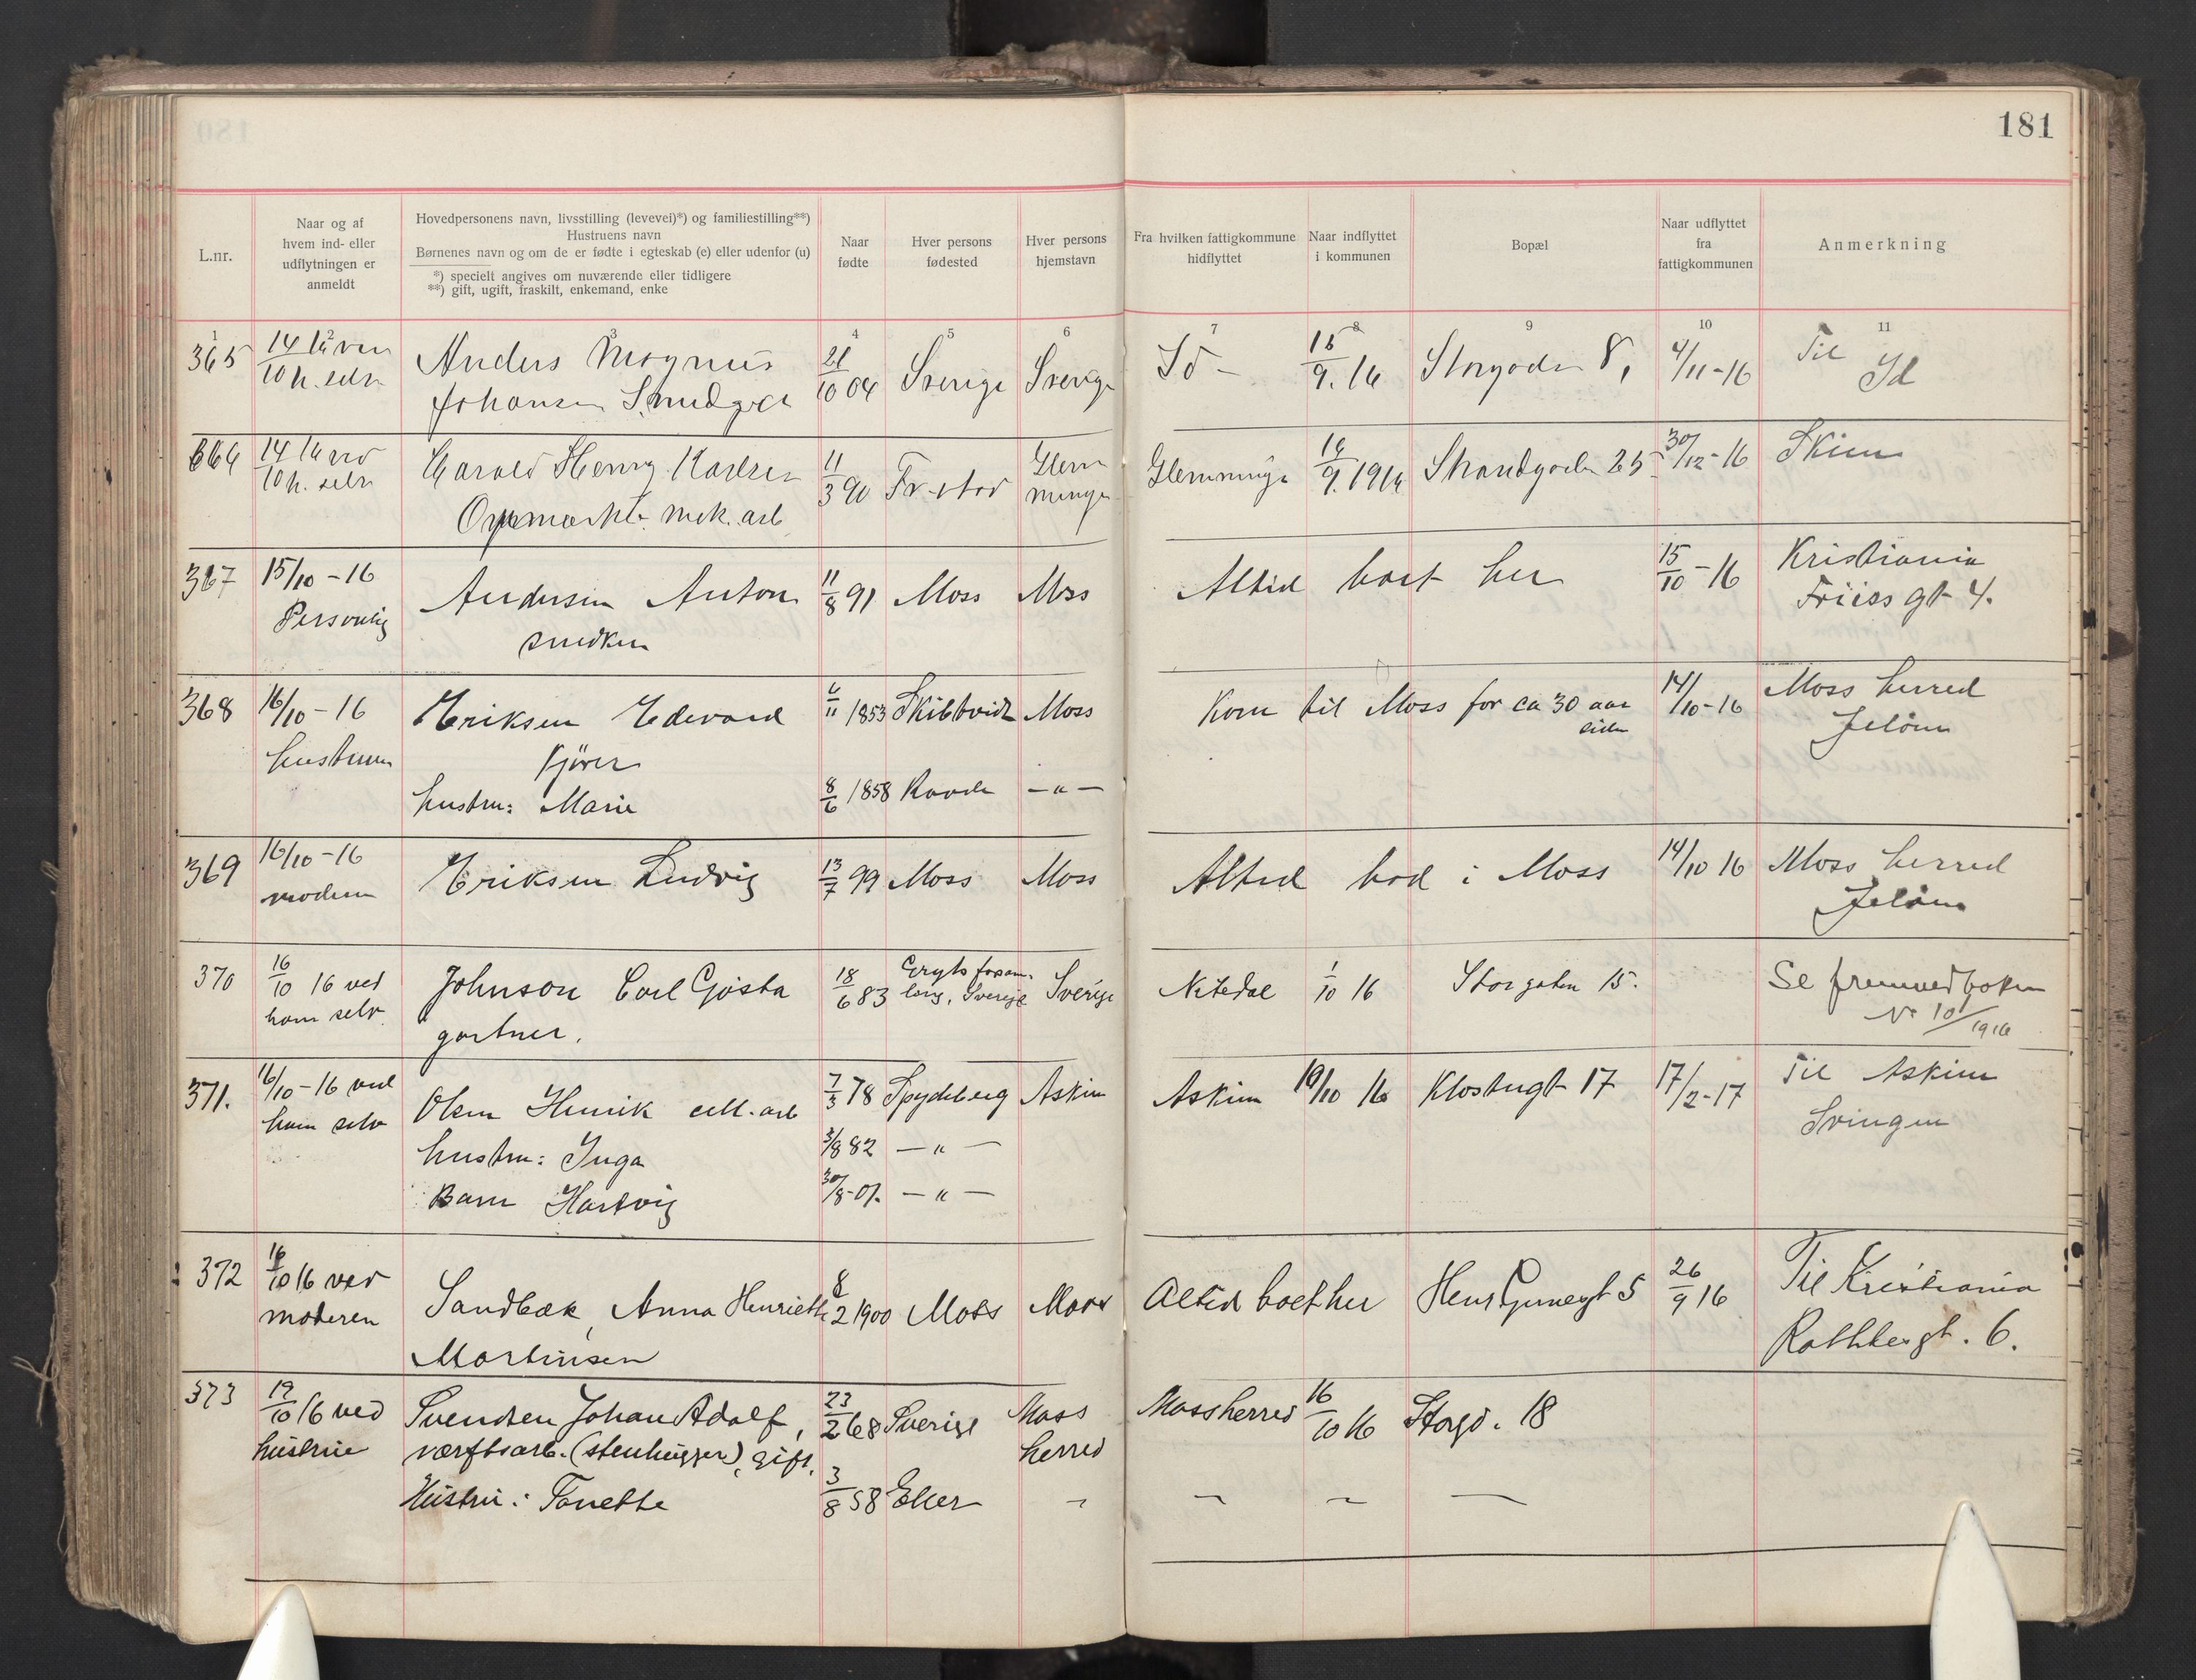 181
L.nr.
Naar og af
hvem ind- eller
udflytningen er
anmeldt
Hovedpersonens navn, livsstilling (levevei)*) og familiestilling**)
Hustruens navn
Børnenes navn og om de er fødte i egteskab (e) eller udenfor (u)
*) specielt angives om nuværende eller tidligere
**) gift, ugift, fraskilt, enkemand, enke
Naar
fødte
Hver persons
fødested
Hver persons
hjemstavn
Fra hvilken fattigkommune
hidflyttet
Naar indflyttet
i kommunen
Bopæl
Naar udflyttet
fra
fattigkommunen
Anmerkning
1 2 3 4 5 6 7 8 9 10 11
365 14/10 16 ved Anders Magnus 21/10 04 Sverige Sverige Id - 15/9. 16 Storgaden 8, 4/11-16 Til
h. selv Johansen Id
366 14/10 16 ved Harald Henry Karlsen 11/3 90 Fr.stad Glem 16/9. 1916 Strandgaden 25 30/12-16 Skien
h. selv mek. arb. minge Glemminge
367 15/10-16 Andersen Anton 11/8 91 Moss Moss Altid boet her 15/10-16 Kristiania
Personlig snedker Friis gt 4.
368 16/10-16 Eriksen Edevard 6/11 1853 Skibtvidt Moss Kom til Moss for ca 30 aar 14/10-16 Moss herred
hustruen Kjører siden Jeløen
hustru: Marie 8/6 1858 Raade — " —
369 16/10-16 Eriksen Ludvig 13/7 99 Moss Moss Altid bod i Moss 14/10 16 Moss herred
moderen Jeløen
370 16/10 16 ved Johnson Carl Gösta 18/6 83 Gryts forsam- Sverige Nitedal 1/10 16 Storgaten 15. Se fremmedboken
ham selv gartner. ling, Sverige No 101/1916
371. 16/10-16 ved Olsen Henrik cell. arb 7/3 78 Spydeberg Askim Askim 10/10 16 Klostergt 17 17/2-17 Til Askim
ham selv hustru: Inga 3/8 82 — " — Svingen
Barn Hartvig 30/8-07. — " —
372 16/10 16 ved Sandbæk, Anna Henriette 8/2 1900 Moss Moss Altid boet her Henr. Gernergt 5 26/9 16 Til Kristiania
moderen Martinsen Rathkesgt. 6.
373 19/10 16 ved Svendsen Johan Adolf, 23/2 68 Sverige Moss Moss herred 16/10 16 Storgd. 18
hustru værftsarb. (stenhugger), gift. herred
Hustru: Tonette 3/8 58 Eker